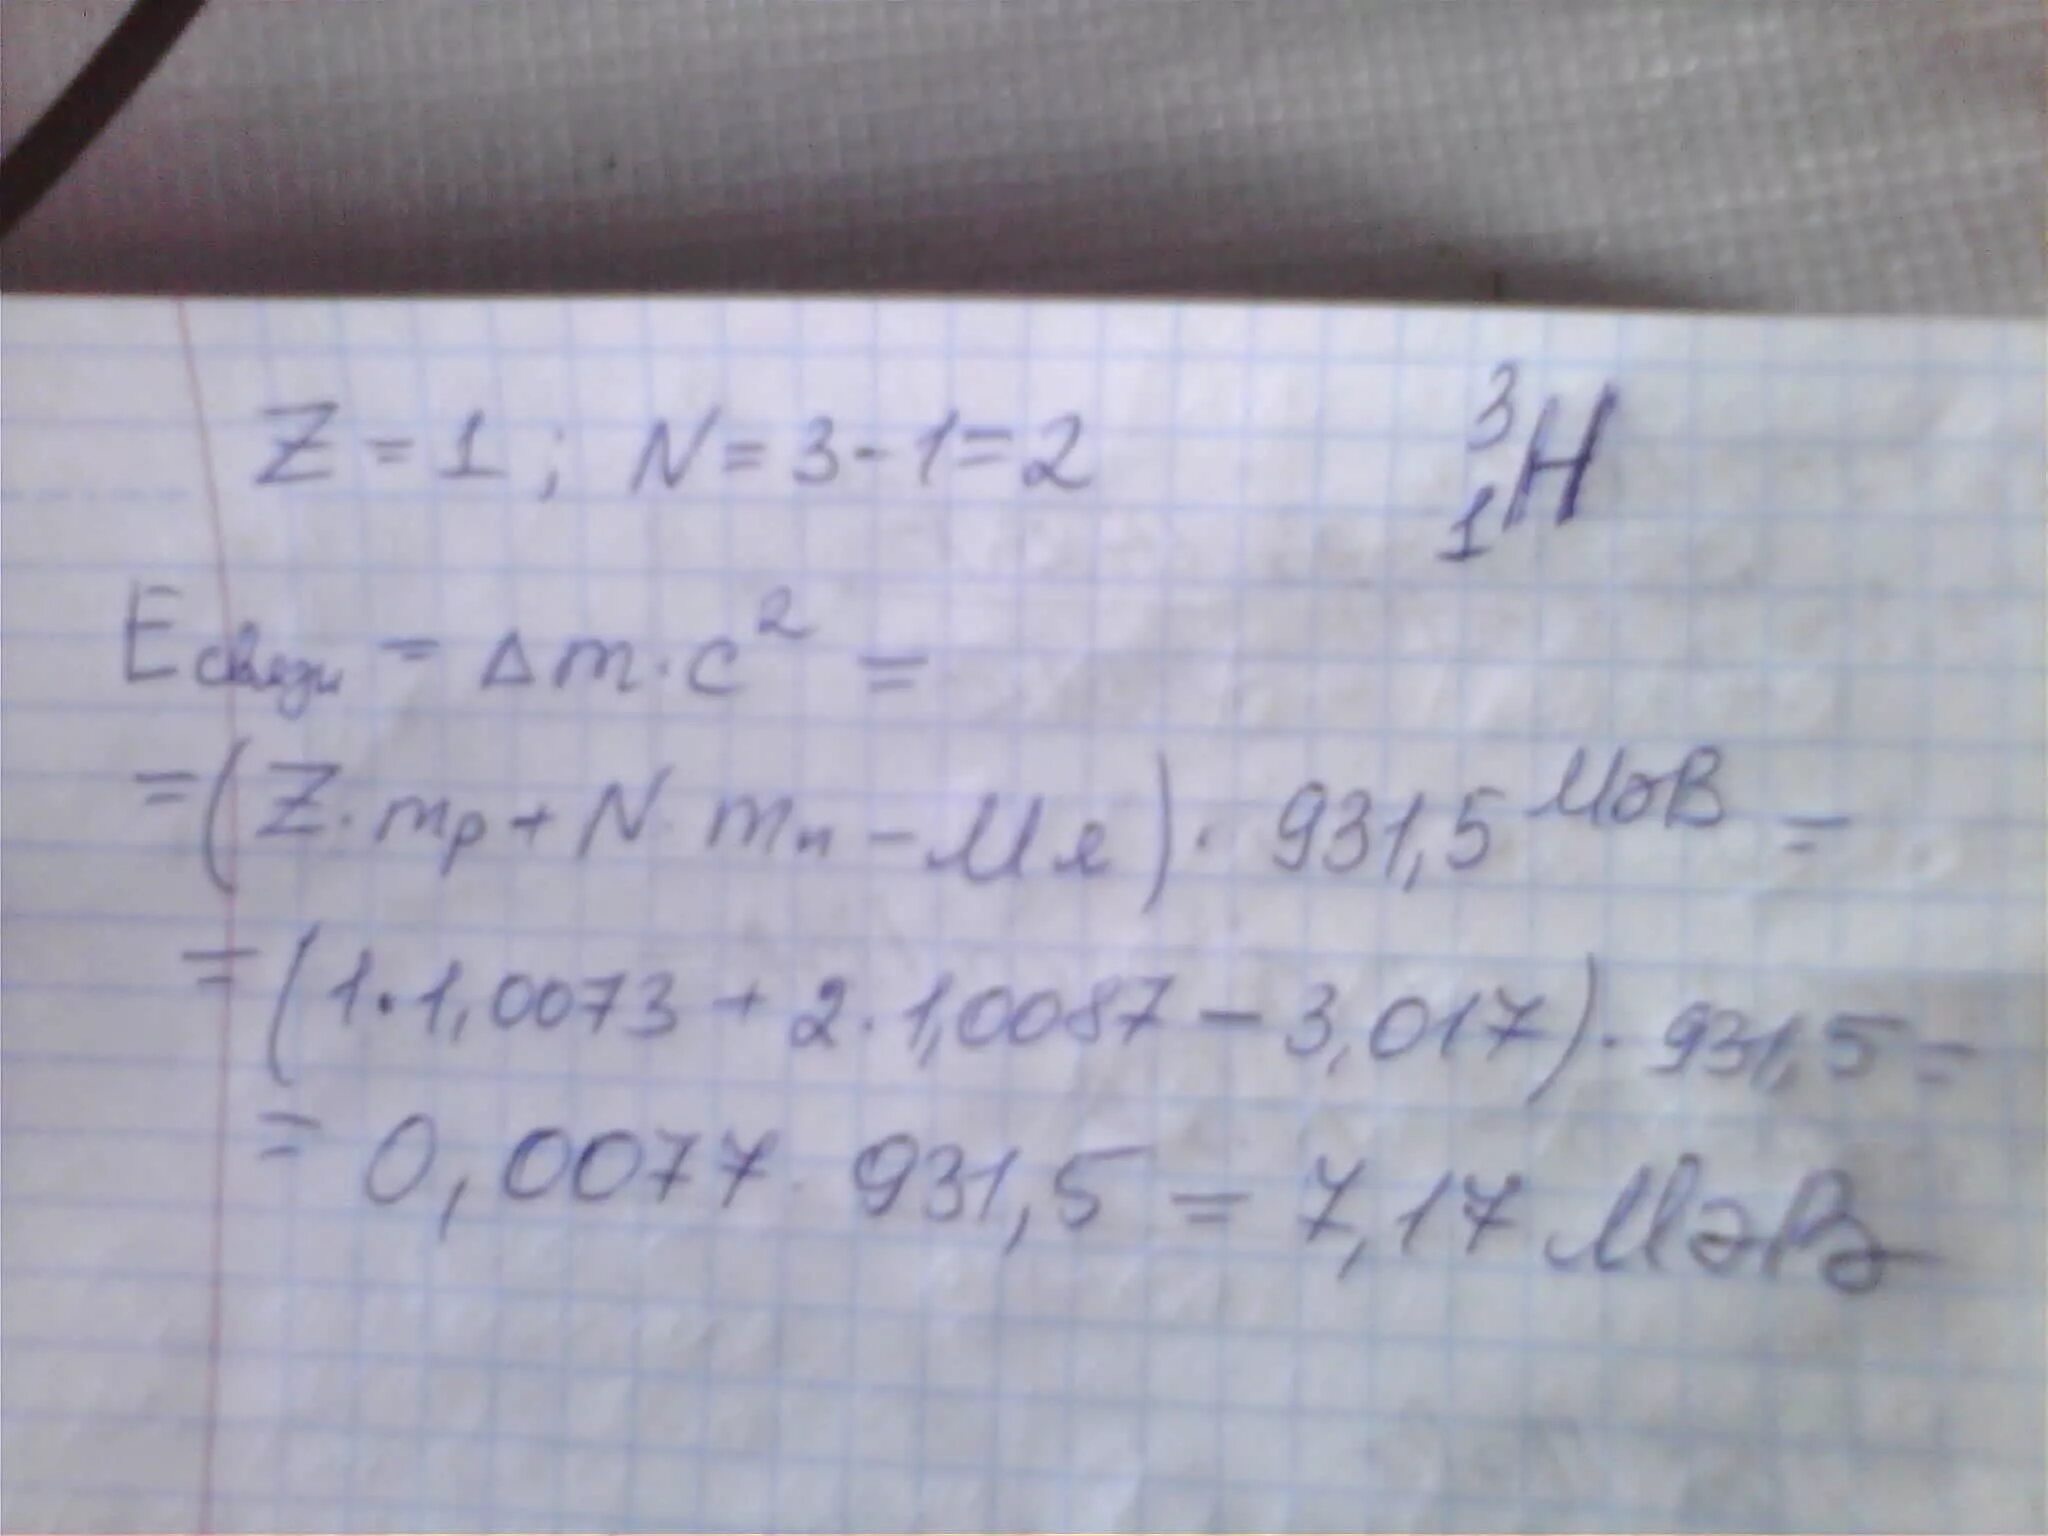 Z = 1; N = 3 - 1 = 2
³₁H
Eсвязи = Δm·c² =
= (Z·mp + N·mn - Mя)·931,5 МэВ =
= (1·1,0073 + 2·1,0087 - 3,017)·931,5 =
= 0,0077·931,5 = 7,17 МэВ